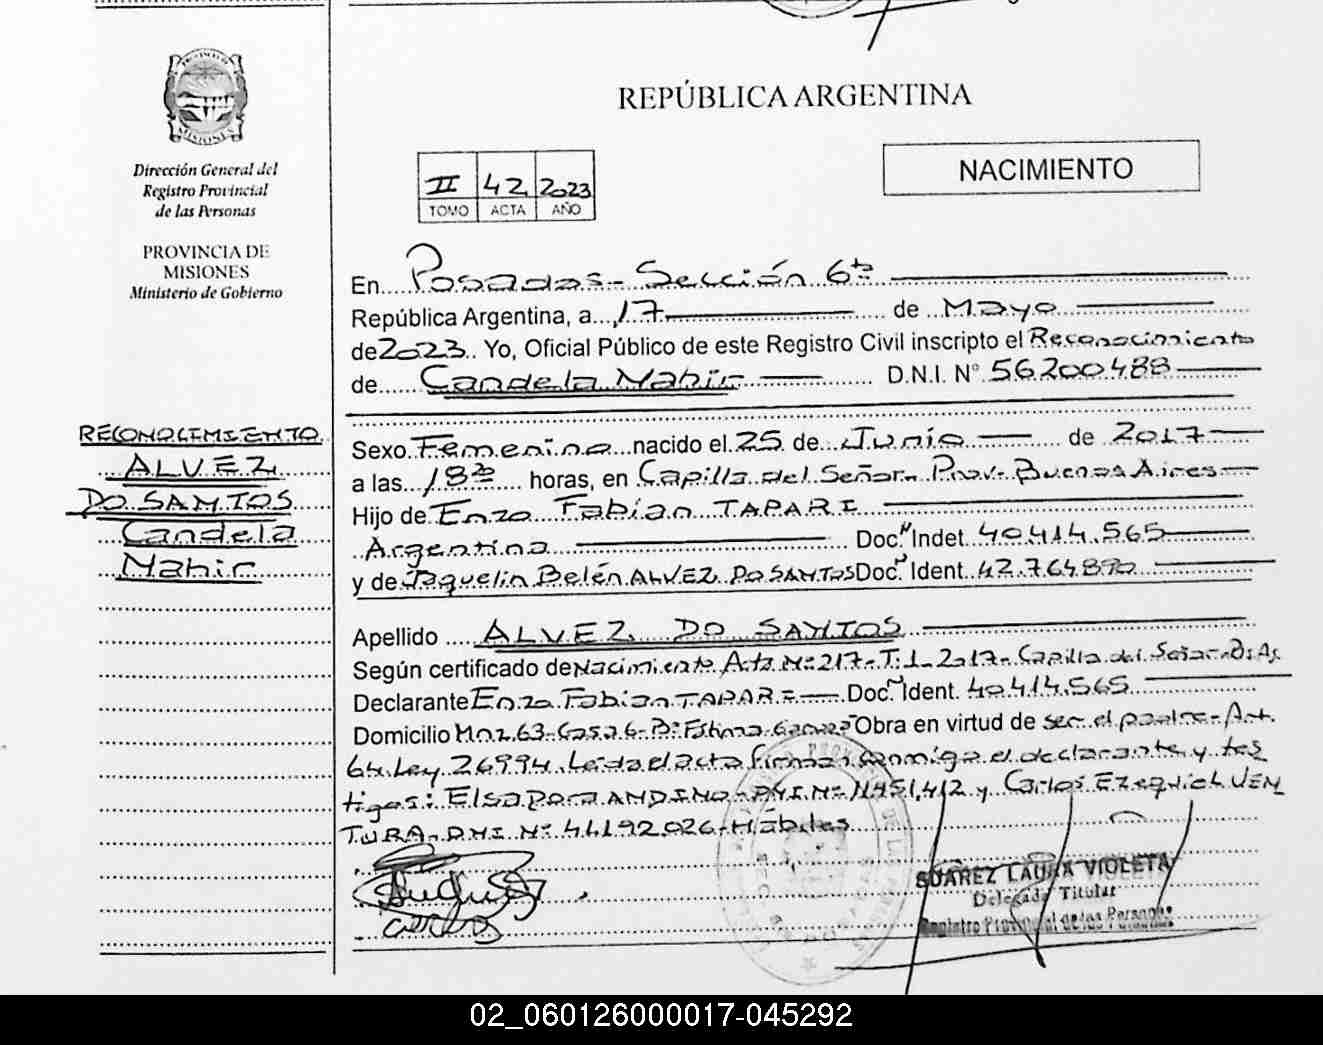 PROVINCIA DE
MISIONES
Dirección General del
Registro Provincial
de las Personas
PROVINCIA DE
MISIONES
Ministerio de Gobierno
REPÚBLICA ARGENTINA
NACIMIENTO
II 42 2023
TOMO ACTA AÑO
En Posadas - Sección 6ta
República Argentina, a 17 de Mayo
de 2023. Yo, Oficial Público de este Registro Civil inscripto el Reconocimiento
de Candela Nahir D.N.I. N° 56200488
RECONOCIMIENTO
ALVEZ
DO SANTOS
Candela
Nahir
Sexo Femenino nacido el 25 de Junio de 2017
a las 18 horas, en Capilla del Señor - Prov. Buenos Aires
Hijo de Enzo Fabian TAPARI
Argentina Doc. Indet. 40.414.565
y de Jaquelin Belén ALVEZ DO SANTOS Doc. Ident. 42.764.890
Apellido ALVEZ DO SANTOS
Según certificado de Nacimiento Acta N° 217 - T: 1 - 2017 - Capilla del Señor - Bs As
Declarante Enzo Fabian TAPARI Doc. Ident. 40.414.565
Domicilio Mnz 63 - Casa 6 - B° Fátima Obra en virtud de ser el padre - Art.
64 Ley 26994. Leída el acta firman conmigo el declarante y tes
tigos: Elsa Dora ANDINO - DNI N° 11451.412 y Carlos Ezequiel VEN
TURA - DNI N° 44192026 - Hábiles
Carlos
SUAREZ LAURA VIOLETA
Delegada Titular
Registro Provincial de las Personas
02_060126000017-045292